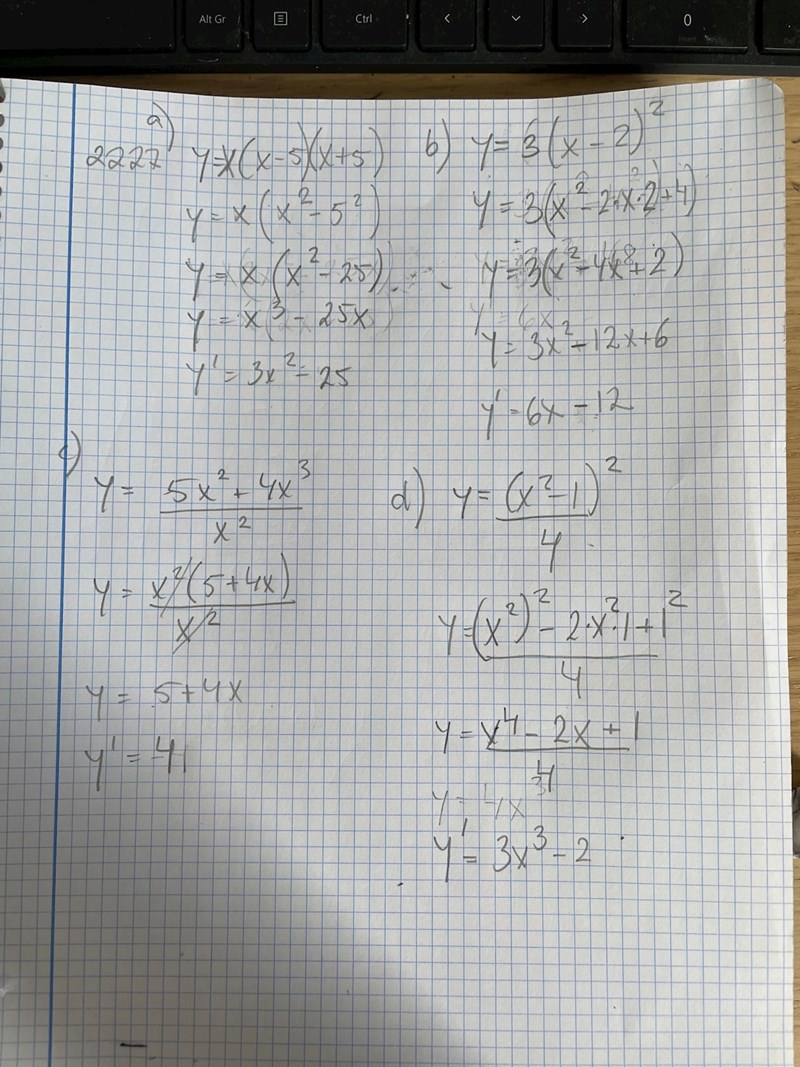 Alt Gr
Ctrl
<
>
0
2227 a) y=x(x-5)(x+5)
y=x(x²-5²)
y=x(x²-25)
y=x³-25x
y'=3x²-25
b) y=3(x-2)²
y=3(x²-2·x·2+4)
y=3(x²-4x+2)
y=3x²-12x+6
y'=6x-12
c) y=(5x²+4x³)/x²
y=x²(5+4x)/x²
y=5+4x
y'=4
d) y=(x²-1)²/4
y=((x²)²-2·x²·1+1²)/4
y=(x⁴-2x+1)/4
y=4x³
y'=3x³-2